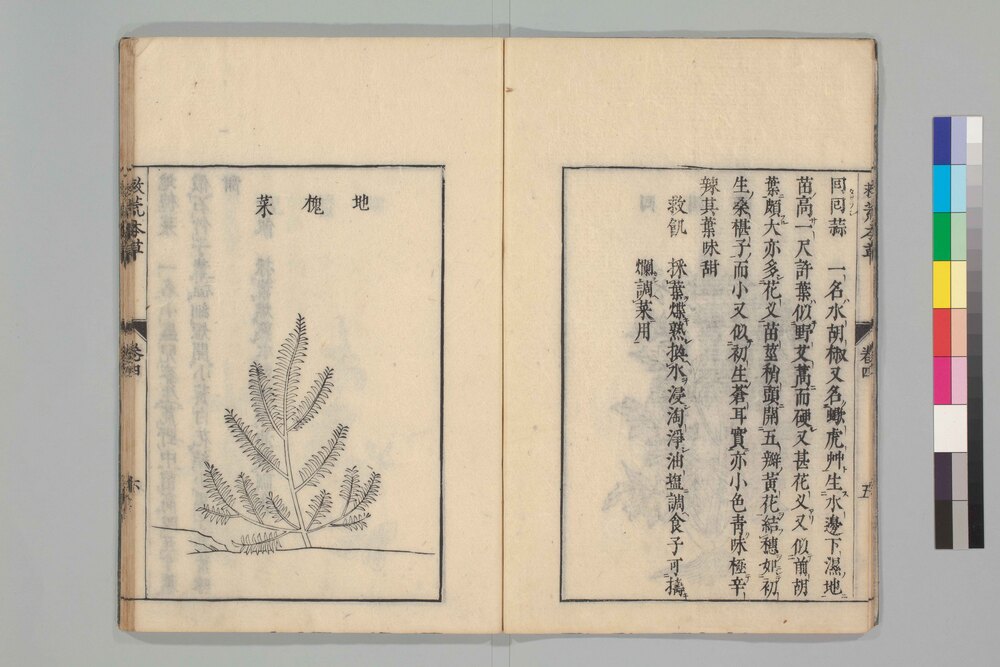 救荒本草
卷四
五
回回蒜　一名水胡椒又名蠍虎艸生水邊下濕地
苗高一尺許葉似野艾蒿而硬又甚花叉又似前胡
葉頗大亦多花叉苗莖稍頭開五瓣黃花結穗如初
生桑椹子而小又似初生蒼耳實亦小色青味極辛
辣其葉味甜
救飢　採葉煠熟換水浸淘淨油塩調食子可擣
爛調菜用
地槐菜
救荒本草
卷四
六